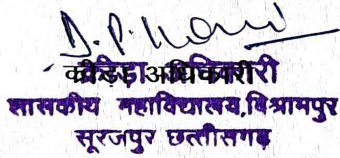 क्रीड़ा अधिकारी
शासकीय महाविद्यालय,विश्रामपुर
सूरजपुर छत्तीसगढ़